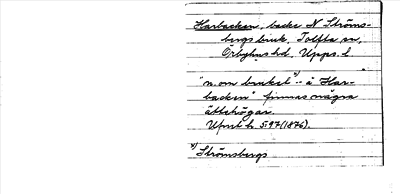 Harbacken, backe N Ströms-
bergs bruk, Tolfta sn,
Örbyhus hd, Upps. l.
"n. om bruket x) .. å Har-
backen" finnas några
ättehögar.
Upml h. 597 (1876).
x) Strömsbergs